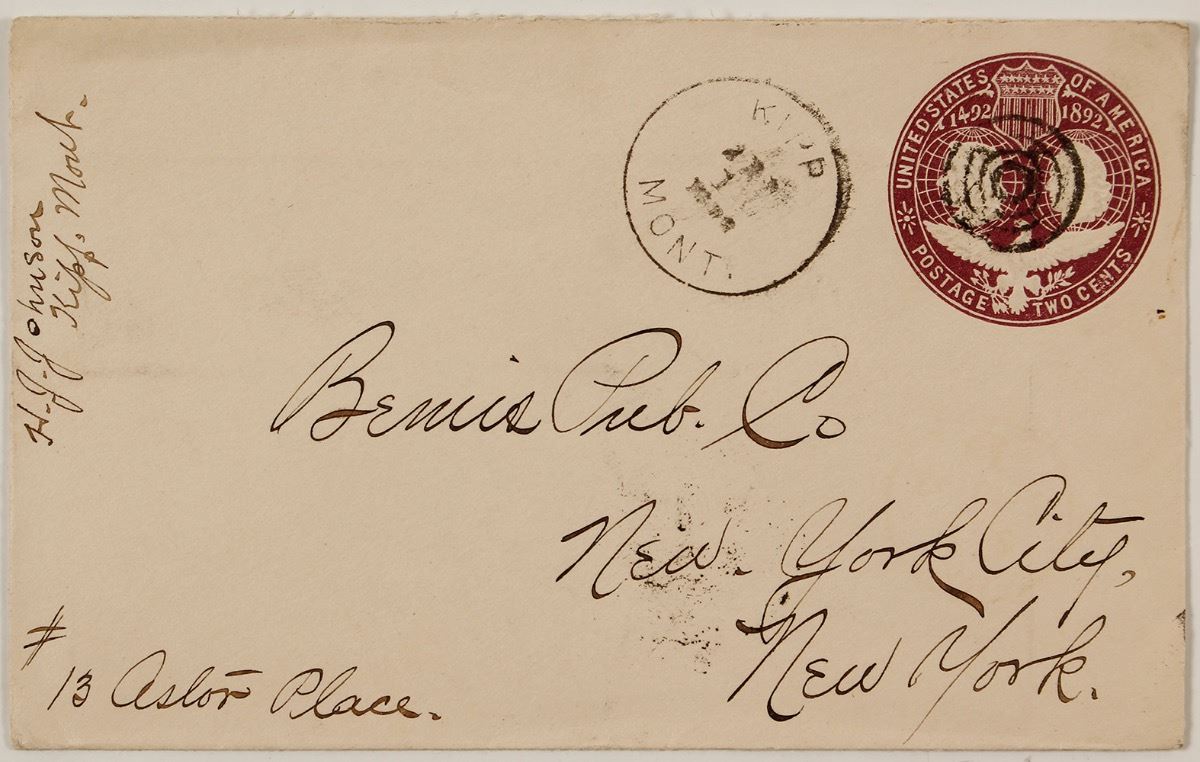 H. J. Johnson
Kipp, Mont.
KIPP
MONT.
UNITED STATES OF AMERICA
1492 1892
POSTAGE TWO CENTS
Bemis Pub. Co
New York City,
New York.
#
13 Astor Place.